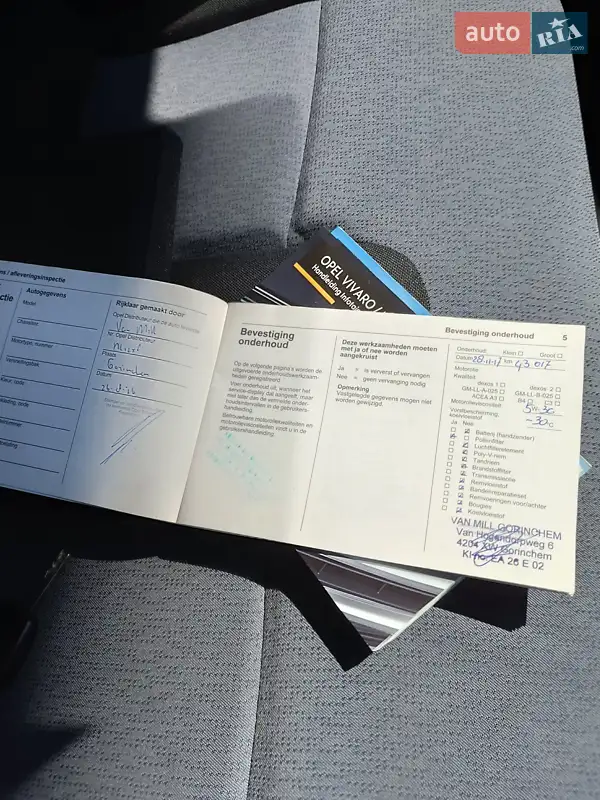 auto RIA .com
OPEL VIVARO
Handleiding Infotainment
ns / afleveringsinspectie
Autogegevens
Model:
Chassisnr.
Motortype, nummer
Kleur, code
Bekleding, code
Rijklaar gemaakt door
Opel Distributeur die de auto afleverde
Van Mill
Nr. Opel Distributeur
Plaats
Gorinchem
Datum
Bevestiging
onderhoud
Op de volgende pagina's worden de
uitgevoerde onderhoudswerkzaam-
heden geregistreerd.
Voer onderhoud uit, wanneer het
service-display dat aangeeft, maar
niet later dan de vermelde onder-
houdstermijnen in de gebruikers-
handleiding.
Betrouwbare motoroliekwaliteiten en
motorolieviscositeiten vindt u in de
gebruikershandleiding.
Deze werkzaamheden moeten
met ja of nee worden
aangekruist
Ja = is ververst of vervangen
Nee = geen vervanging nodig
Opmerking
Vastgelegde gegevens mogen niet
worden gewijzigd.
Bevestiging onderhoud 5
Onderhoud: Klein Groot
Datum 28-11-17 km 43 017
Motorolie
Kwaliteit
dexos 1 dexos 2
GM-LL-A-025 GM-LL-B-025
ACEA A3 B4
Motorolieviscositeit 5w30
Vorstbescherming,
koelvloeistof -30c
Ja Nee
Batterij (handzender)
Pollenfilter
Luchtfilterelement
Poly-V-riem
Tandriem
Brandstoffilter
Transmissieolie
Remvloeistof
Bandenreparatieset
Remvoeringen voor/achter
Bougies
Koelvloeistof
VAN MILL GORINCHEM
Van Hogendorpweg 6
4204 XW Gorinchem